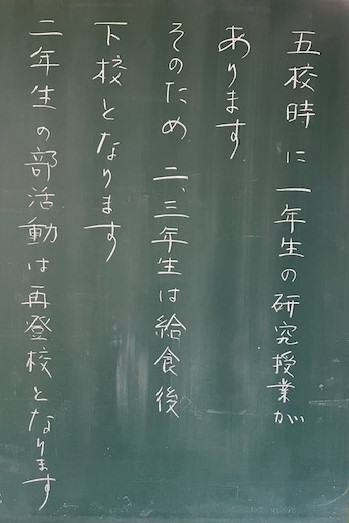 五校時に一年生の研究授業が
あります
そのため二、三年生は給食後
下校となります
二年生の部活動は再登校となります